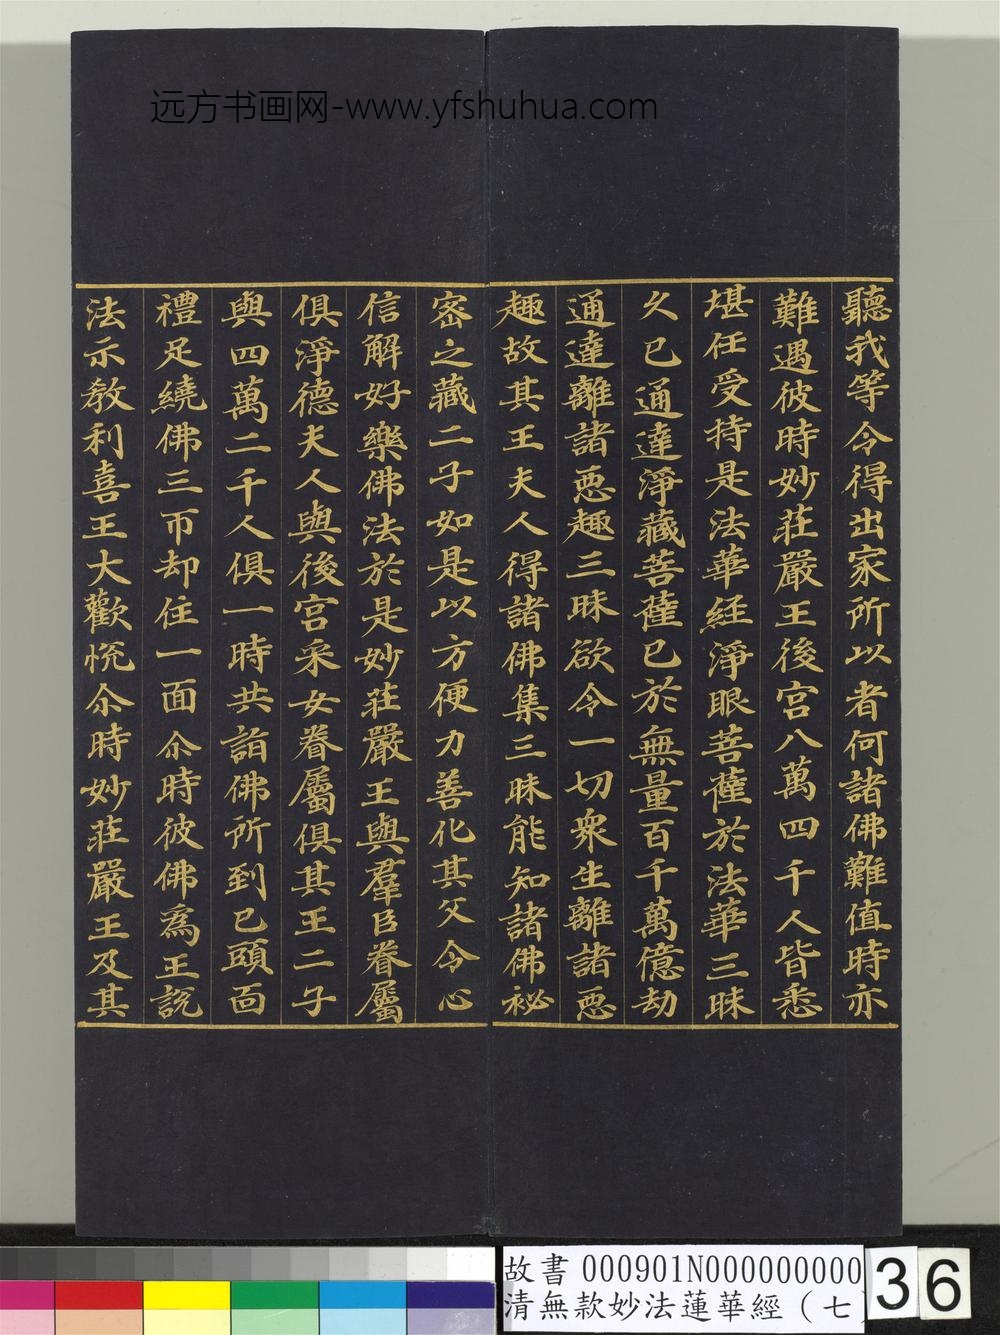 远方书画网-www.yfshuhua.com
聽我等令得出家所以者何諸佛難值時亦
難遇彼時妙莊嚴王後宮八萬四千人皆悉
堪任受持是法華經淨眼菩薩於法華三昧
久已通達淨藏菩薩已於無量百千萬億劫
通達離諸惡趣三昧欲令一切眾生離諸惡
趣故其王夫人得諸佛集三昧能知諸佛祕
密之藏二子如是以方便力善化其父令心
信解好樂佛法於是妙莊嚴王與羣臣眷屬
俱淨德夫人與後宮采女眷屬俱其王二子
與四萬二千人俱一時共詣佛所到已頭面
禮足繞佛三帀却住一面尒時彼佛為王說
法示教利喜王大歡悅尒時妙莊嚴王及其
故書 000901N000000000
清無款妙法蓮華經（七
36